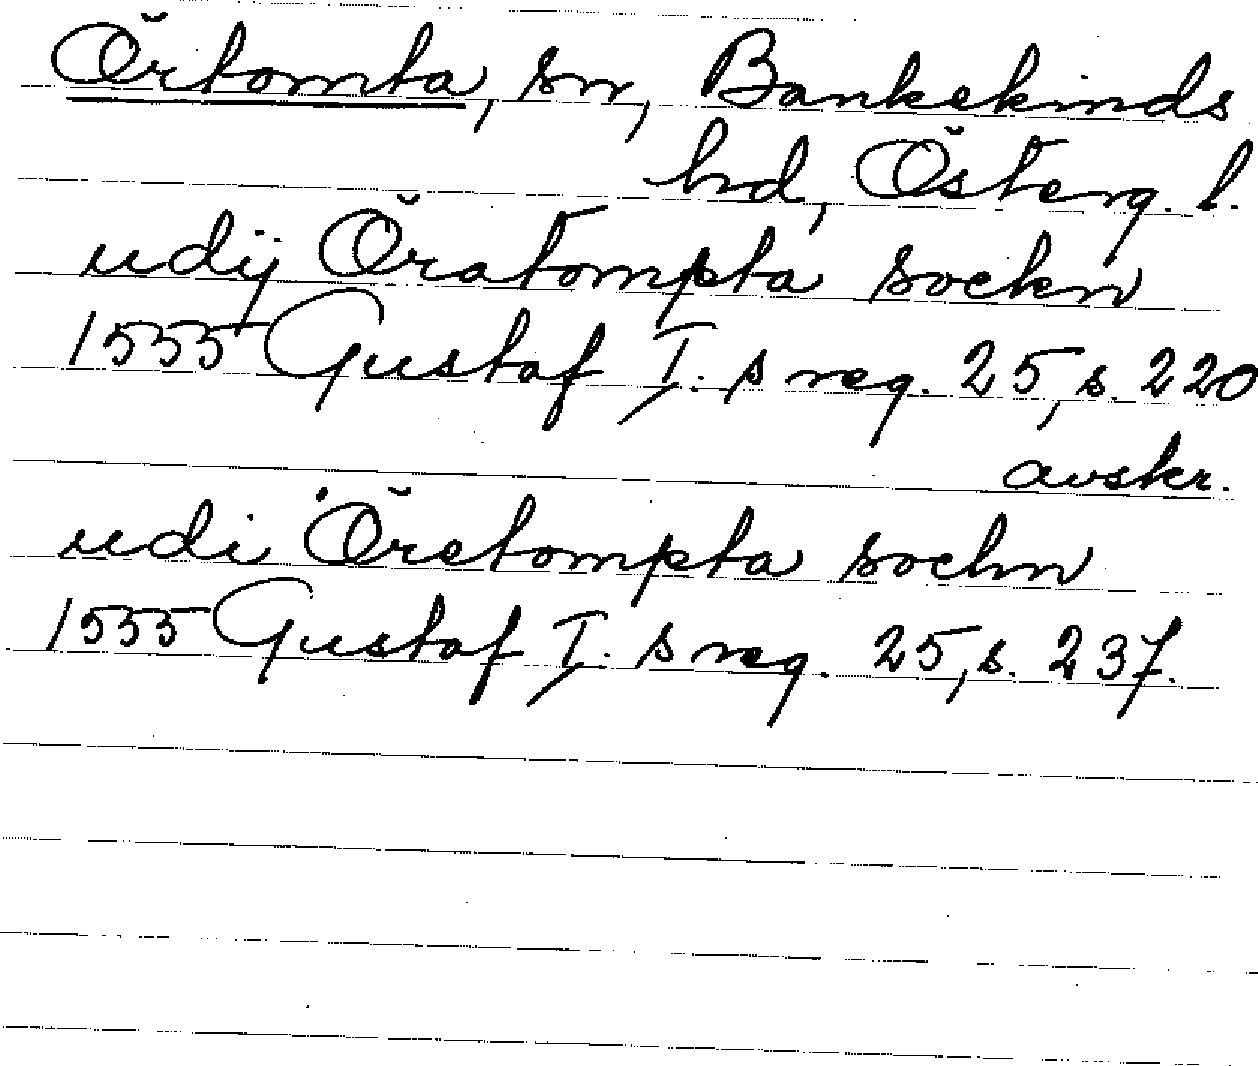 Örtomta, sn, Bankekinds
hd, Österg. l.
udij Öratompta sockn
1555 Gustaf I. s reg. 25, s. 220
avskr.
udi Öretompta sochn
1555 Gustaf I. s reg. 25, s. 237.